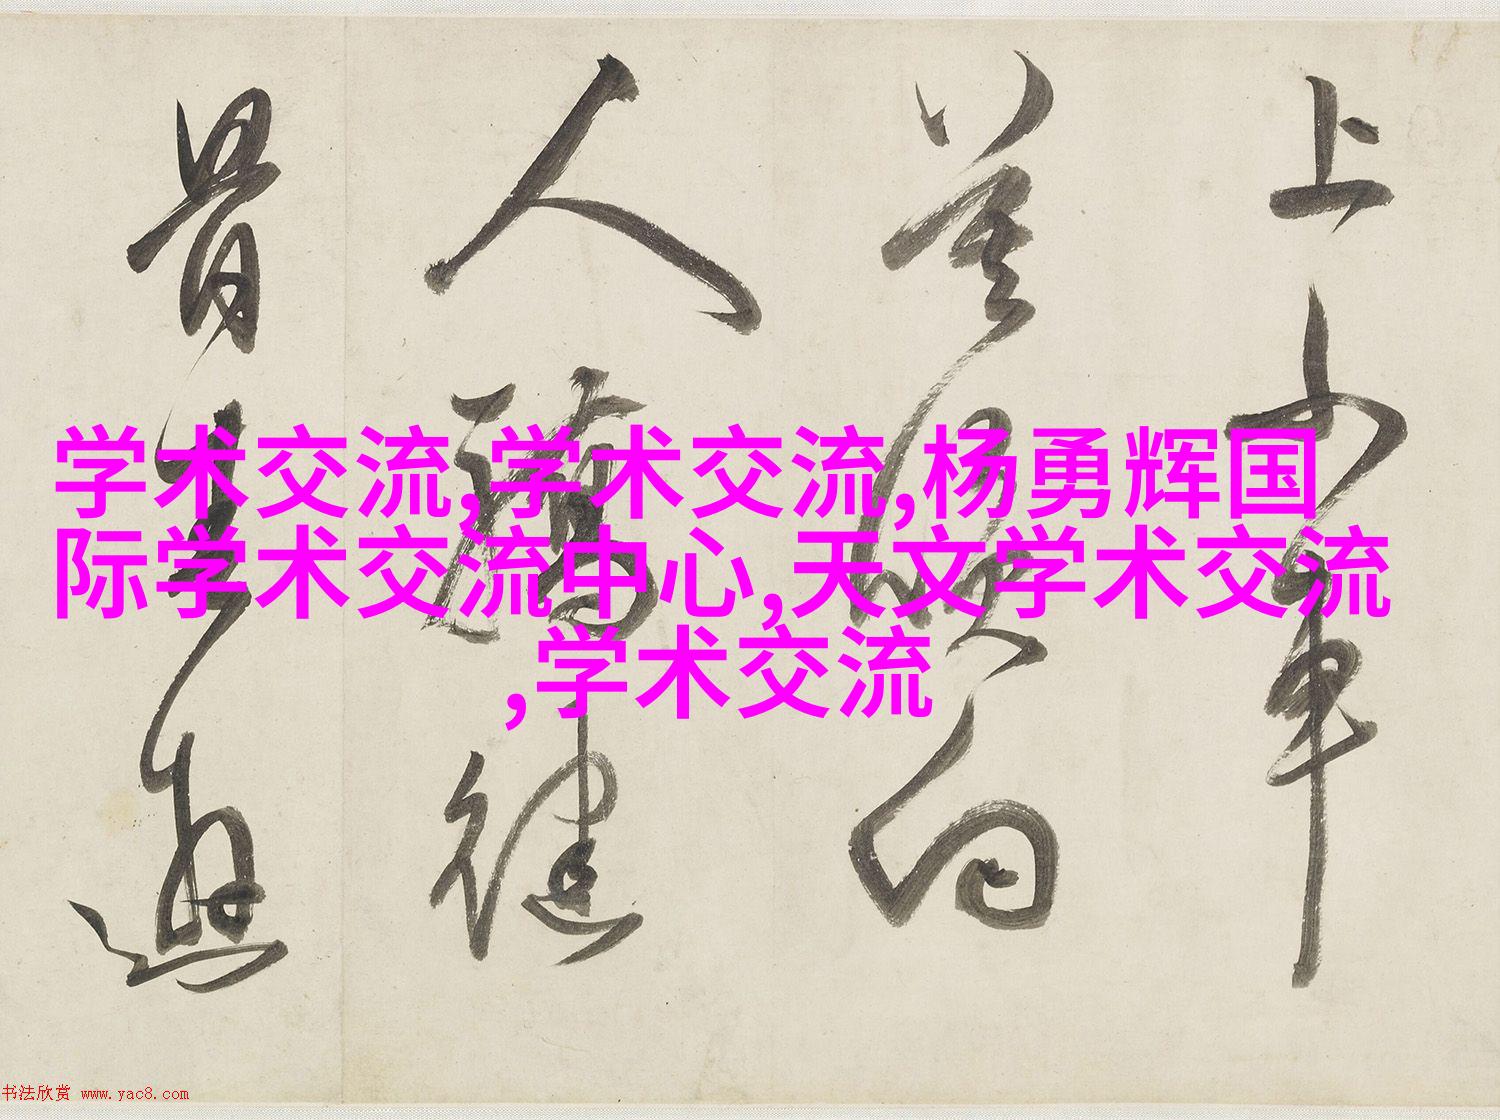 上小車
莫得明白
人璃健
骨生遊
学术交流,学术交流,杨勇辉国
际学术交流中心,天文学术交流
,学术交流
书法欣赏 www.yac8.com